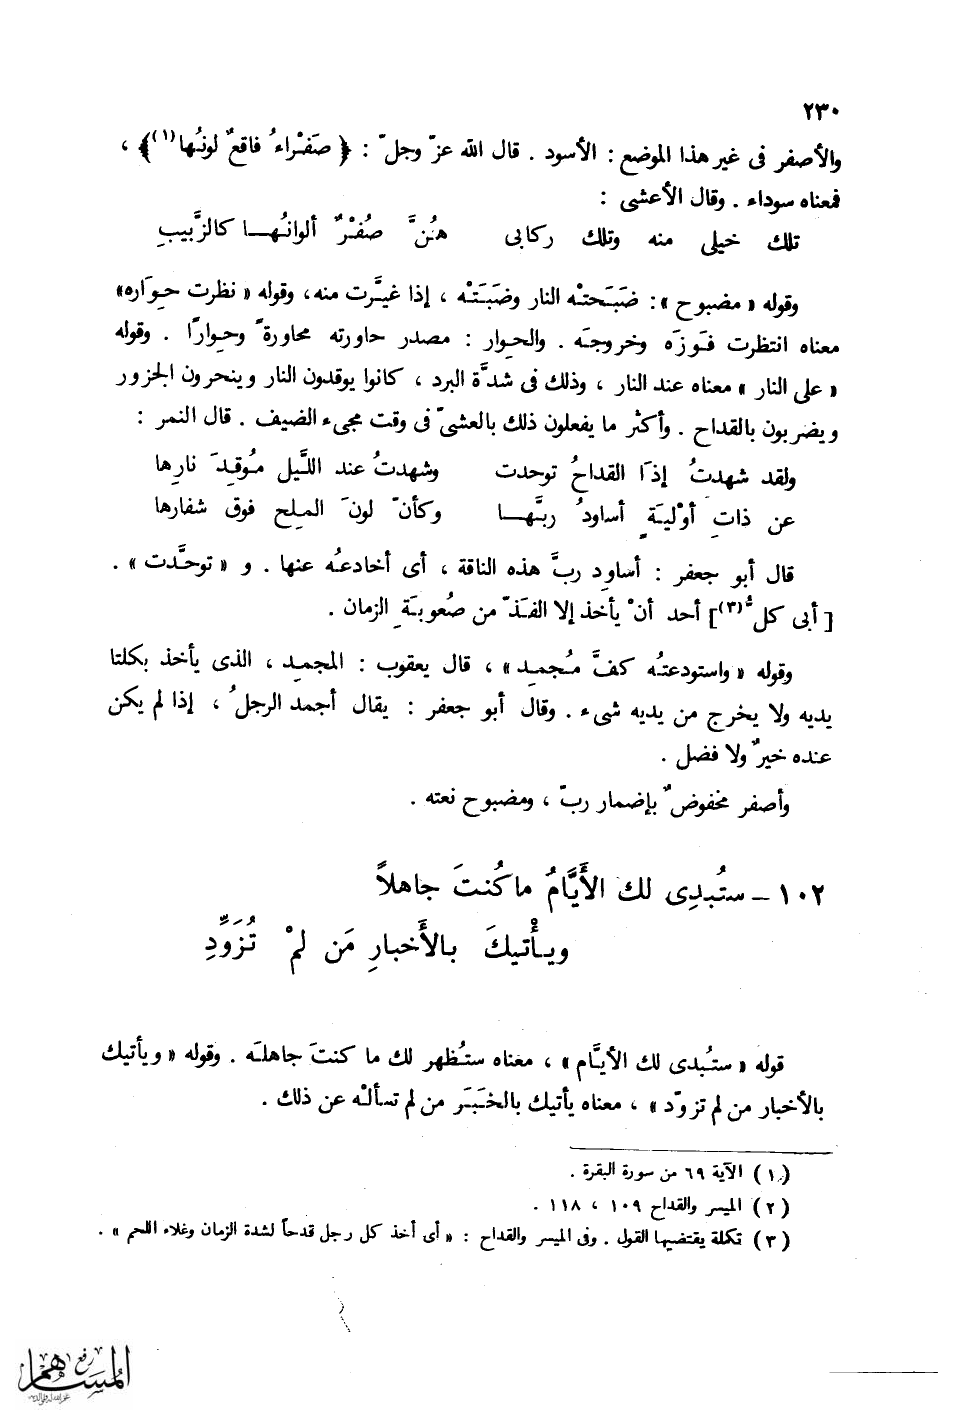 ٢٣٠
والأصفر فى غير هذا الموضع : الأسود . قال الله عزّ وجلّ : ﴿ صَفْراءُ فاقعٌ لونُها(١)﴾ ،
فمعناه سوداء . وقال الأعشى :
تلك خيلى منه وتلك ركابى هُنَّ صُفْرٌ ألوانُهـا كالزَّبيبِ
وقوله « مضبوح »: ضَبَحتْه النار وضَبَتْه ، إذا غيَّرت منه، وقوله « نظرت حِوَاره»
معناه انتظرت فَوزَه وخروجَه . والحِوار : مصدر حاورته محاورةً وحِوارًا . وقوله
« على النار » معناه عند النار ، وذلك فى شدَّة البرد ، كانوا يوقدون النار وينحرون الجزور
ويضربون بالقداح . وأكثر ما يفعلون ذلك بالعشىّ فى وقت مجىء الضيف . قال النمر :
ولقد شهدتُ إذَا القداحُ توحدت وشهدتُ عند اللَّيل مُوقِدَ نارِها
عن ذاتِ أوْليَةٍ أساودُ ربَّهـا وكأنّ لونَ الملح فوق شفارها
قال أبو جعفر : أساودِ ربَّ هذه الناقة ، أى أخادعُه عنها . و « توحَّدت » .
[ أبى كلُّ(٣)] أحد أنْ يأخذ إلا الفذّ من صُعوبَةِ الزمان .
وقوله « واستودعتُه كفَّ مُجمِد » ، قال يعقوب : المجمِد ، الذى يأخذ بكلتا
يديه ولا يخرج من يديه شىء . وقال أبو جعفر : يقال أجمد الرجلُ ، إذا لم يكن
عنده خيرٌ ولا فضل .
وأصفر مخفوضٌ بإضمار ربّ ، ومضبوح نعته .
١٠٢ – ستُبدِى لك الأَيَّامُ ما كُنتَ جاهلاً
ويـأْتيكَ بالأَخبارِ مَن لمْ تُزَوِّدِ
قوله « ستُبدى لك الأيَّام » ، معناه ستُظهر لك ما كنتَ جاهلَه . وقوله « ويأتيك
بالأخبار من لم تزوّد » ، معناه يأتيك بالخَبَر من لم تسألْه عن ذلك .
(١) الآية ٦٩ من سورة البقرة .
(٢) الميسر والقداح ١٠٩ ، ١١٨ .
(٣) تكملة يقتضيها القول . وفى الميسر والقداح : « أى أخذ كل رجل قدحاً لشدة الزمان وغلاء اللحم » .